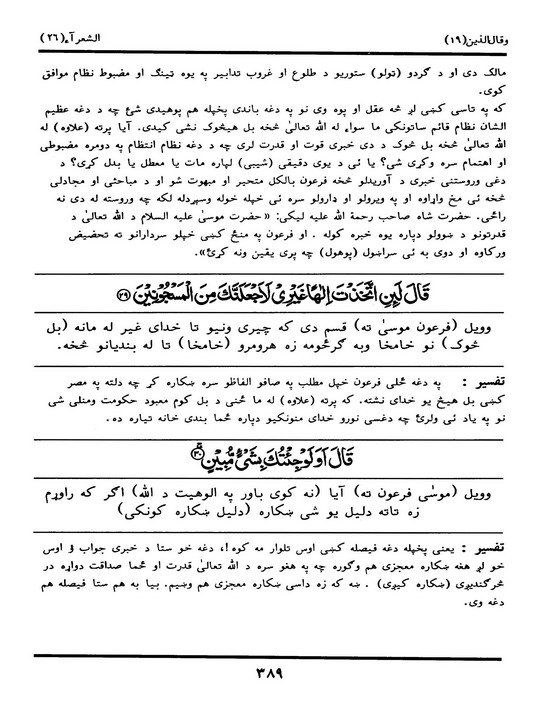 وقال الذین(۱۹)
الشعرآء(۲٦)
مالک دی او د گردو (ټولو) ستوریو د طلوع او غروب تدابیر په یوه ټینگ او مضبوط نظام موافق
کوی.
که په تاسی کښی لږ څه عقل او پوه وی نو په دغه باندی پخپله هم پوهیدی شئ چه د دغه عظیم
الشان نظام قائم ساتونکی ما سواء له الله تعالیٰ څخه بل هیڅوک نشی کیدی. آیا پرته (علاوه) له
الله تعالیٰ څخه بل څوک د دی خبری قوت او قدرت لری چه د دغه نظام انتظام په دومره مضبوطی
او اهتمام سره وکړی شی؟ یا ئی د یوی دقیقی (شیبی) لپاره مات یا معطل یا بدل کړی؟ د
دغی وروستنی خبری د آوریدلو څخه فرعون بالکل متحیر او مبهوت شو او د مباحثی او مجادلی
څخه ئی مخ واړاوه او په ویرولو او دارولو سره ئی خپله خوله وسپړدله لکه چه وروسته له دی نه
راځی. حضرت شاه صاحب رحمة الله علیه لیکی: «حضرت موسیٰ علیه السلام د الله تعالیٰ د
قدرتونو د ښوولو دپاره یوه خبره کوله . او فرعون په منځ کښی خپلو سردارانو ته تحضیض
ورکاوه او دوی به ئی سراښول (پوهول) چه پری یقین ونه کړئ».
قَالَ لَئِنِ اتَّخَذْتَ اِلٰهًا غَيْرِيْ لَاَجْعَلَنَّكَ مِنَ الْمَسْجُوْنِيْنَ ﴿۲۹﴾
وویل (فرعون موسیٰ ته) قسم دی که چیری ونیو تا خدای غیر له مانه (بل
څوک) نو خامخا وبه گرځومه زه هرومرو (خامخا) تا له بندیانو څخه.
تفسیر : په دغه ځلی فرعون خپل مطلب په صافو الفاظو سره ښکاره کړ چه دلته په مصر
کښی بل هیڅ یو خدای نشته. که پرته (علاوه) له ما ځنی د بل کوم معبود حکومت ومنلی شی
نو په یاد ئی ولرئ چه دغسی نورو خدای منونکیو دپاره ځما بندی خانه تیاره ده.
قَالَ اَوَلَوْ جِئْتُكَ بِشَيْءٍ مُّبِيْنٍ ﴿۳۰﴾
وویل (موسٰی فرعون ته) آیا (نه کوی باور په الوهیت د الله) اگر که راوړم
زه تاته دلیل یو شی ښکاره (دلیل ښکاره کونکی)
تفسیر : یعنی پخپله دغه فیصله کښی اوس تلوار مه کوه!، دغه خو ستا د خبری جواب ؤ اوس
خو لږ هغه ښکاره معجزی هم وگوره چه په هغو سره د الله تعالیٰ قدرت او ځما صداقت دواړه در
څرگندیږی (ښکاره کیږی) . ښه که زه داسی ښکاره معجزی هم وښیم. بیا به هم ستا فیصله هم
دغه وی.
۳۸۹